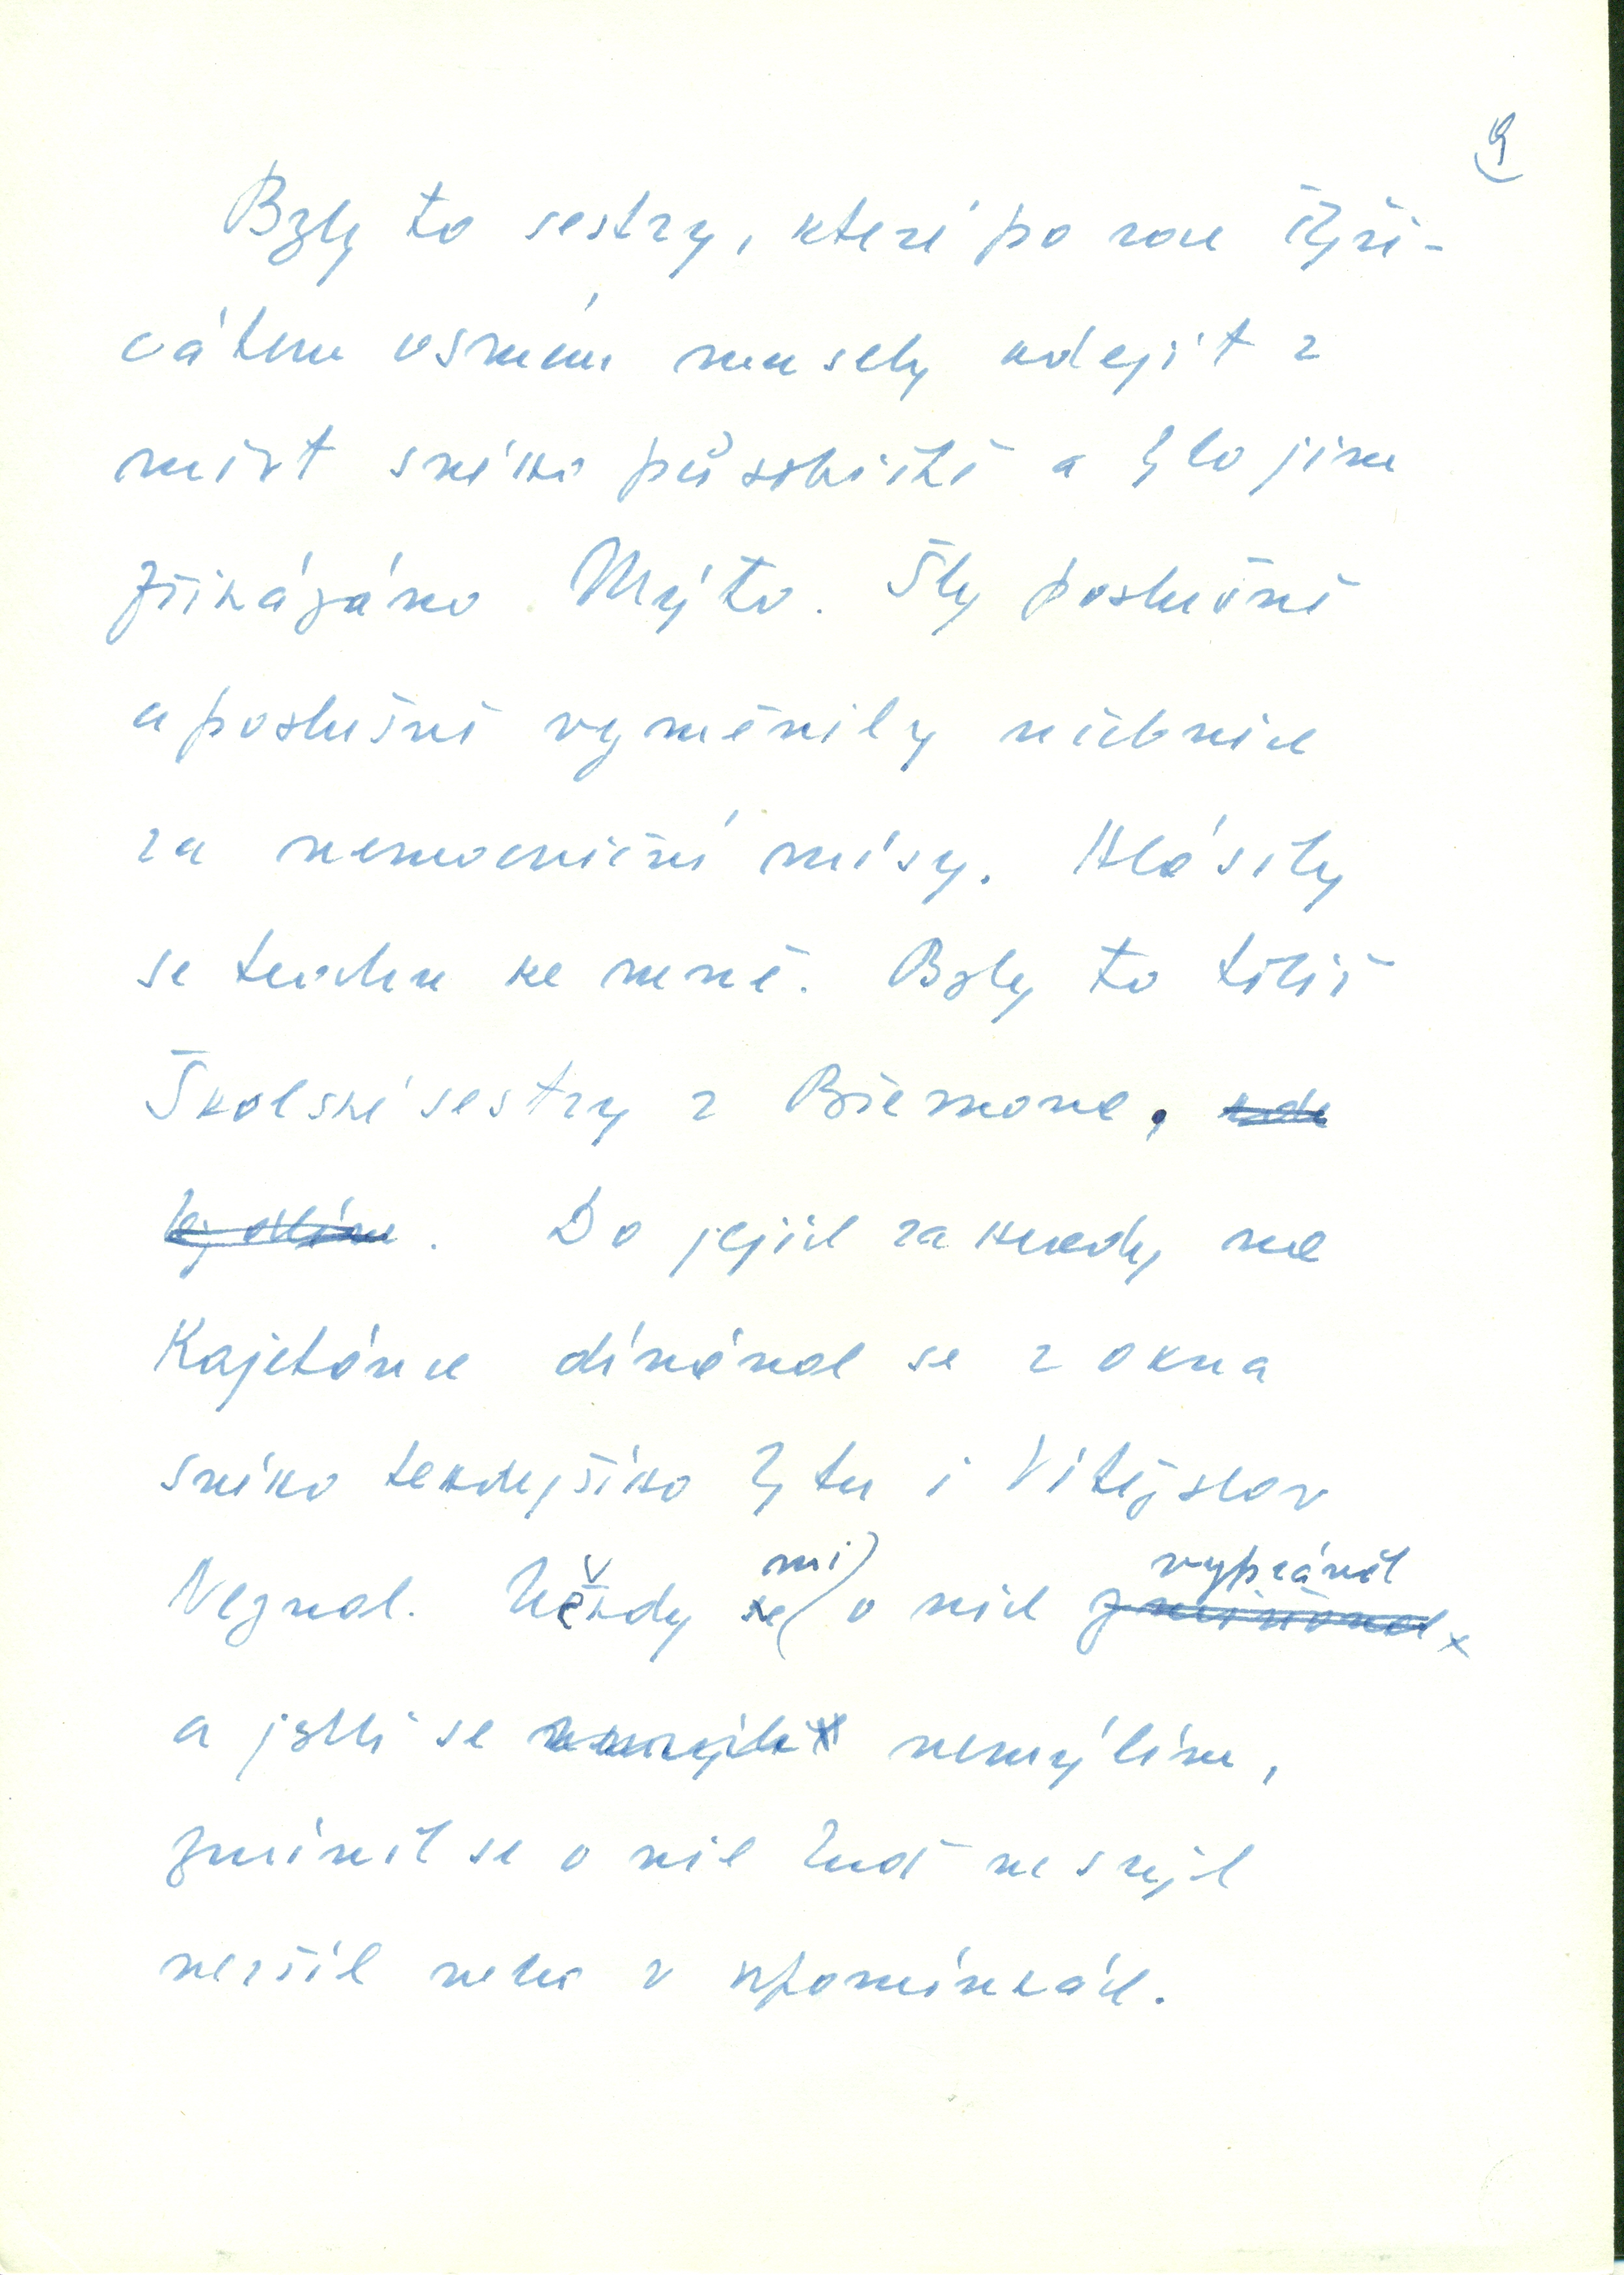 9
Byly to sestry, které po roce čtyři-
cátém osmém musely odejít z
míst svého působiště a bylo jim
přikázáno Mýto. Šly poslušně
a poslušně vyměnily učebnice
za nemocniční mísy. Hlásily
se trochu ke mně. Byly to totiž
Školské sestry z Břevnova,
. Do jejich zahrady na
Kajetánce díval se z okna
svého tehdejšího bytu i Vítězslav
Nezval. Někdy mi o nich vyprávěl
a jestli se nemýlím,
zmínil se o nich buď ve svých
verších nebo v upomínkách.